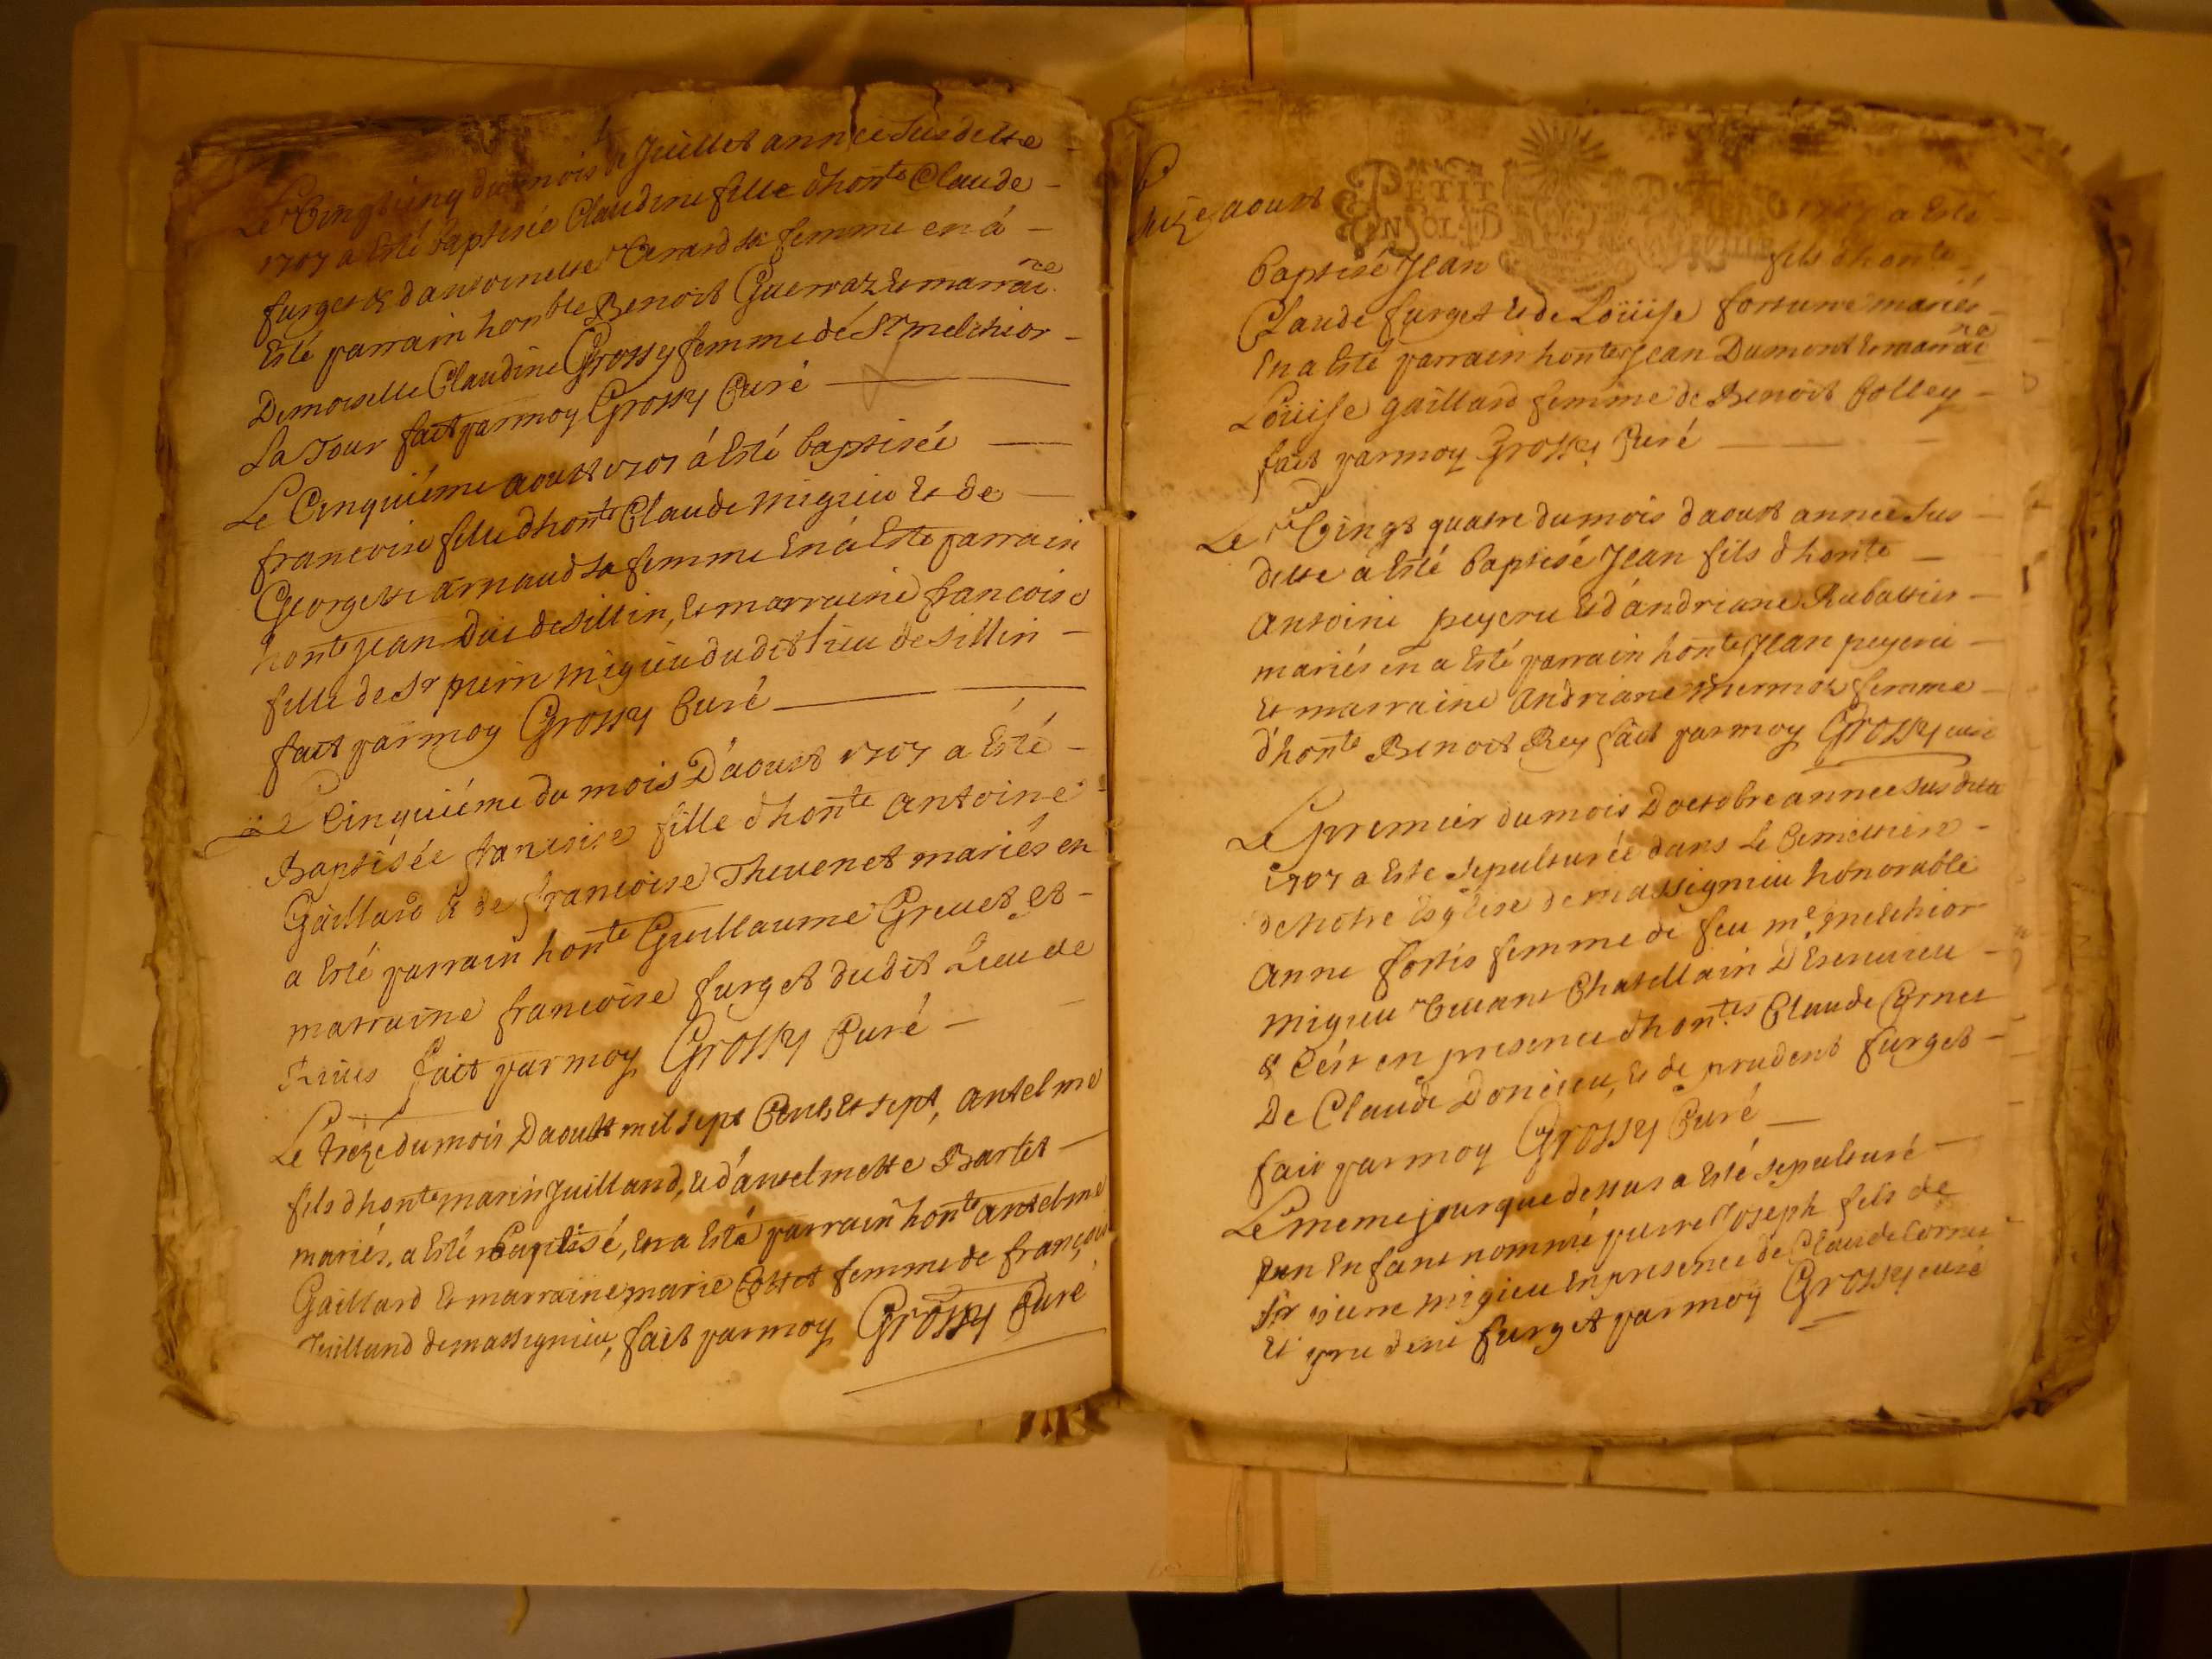 Le Vingt cinq du mois de Juillet année susditte
1707 a Esté baptisée Claudine fille d'honte Claude
furget & d'antoinette Girard sa femme en á
Esté parrain honble Benoit Guerraz & marrāē
Demoiselle Claudine Grossy femme de Sr melchior
La Tour fait par moy Grossy Curé
Le Cinquiéme aoust 1707 á Esté baptisée
francoise fille d'honte Claude migieu & de
Georgette arnaud sa femme En á Esté parrain
honte Jean Duc de sillin, & marraine francoise
fille de Sr pierre migieu dudit lieu de sillin
fait par moy Grossy Curé
Le Cinquiéme du mois D'aoust 1707 a Esté
Baptisée francoise fille d'honte antoine
Gaillard & de francoise Thevenet mariés en
a Esté parrain honte Guillaume Grevet et
marraine francoise furget dudit Lieu de
fait par moy Grossy Curé
Le treze du mois D'aoust mil sept Cents & sept, antelme
fils d'honte marin Juilland, & d'antelmette Bartet
mariés, a Esté Baptisé, En a Esté parrain honte antelme
Gaillard & marraine marie Cottet femme de françois
Juilland de massignieu, fait par moy Grossy Curé
Le
seize aoust 1707 a Esté
PETIT
EN SOL
baptisé Jean fils d'honte
Claude furget & de Loüise fortune mariés
En a Esté parrain honte Jean Dumont & marrāē
Loüise gaillard femme de Benoit Colley
fait par moy Grossy Curé
Le Vingt quatre du mois d'aoust année sus
ditte a Esté baptisé Jean fils d'honte
antoine peycru & d'andriane Rubattier
mariés en a Esté parrain honte Jean peycru
Et marraine andriane mermoz femme
d'honte Benoit Rey fait par moy Grossy curé
Le premier du mois D'octobre année susditte
1707 a Este sepulturée dans Le Cimettiere
de Notre Esglise de massignieu honorable
anne fortis femme de feu me melchior
migieu Vivant Chatellain D'Esenieu
& C'est en presence d'hontes Claude Cornu
De Claude Doncieu, & de prudent furget
fait par moy Grossy Curé
Le meme jour que dessus a Esté sepulturé
un Enfant nommé pierre Joseph fils de
Sr pierre migieu En presence de Claude Cornu
Et prudent furget par moy Grossy curé